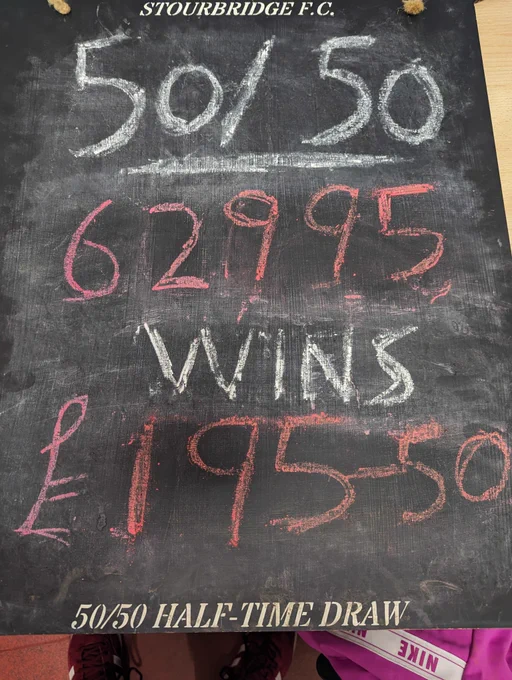 STOURBRIDGE F.C.
50/50
62995
WINS
£195-50
50/50 HALF-TIME DRAW
NIKE